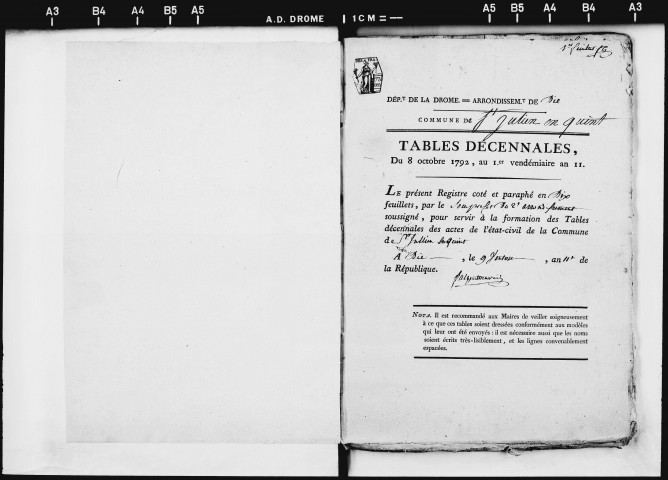 A3 B4 A4 B5 A5 A.D. DROME 1 CM = A5 B5 A4 B4 A3
1er feuillet
DÉP.T DE LA DROME. = ARRONDISSEM.T DE Die
COMMUNE DE St Julien en quint
TABLES DÉCENNALES,
Du 8 octobre 1792, au 1.er vendémiaire an 11.
LE présent Registre coté et paraphé en Dix
feuillets, par le
soussigné, pour servir à la formation des Tables
décennales des actes de l'état-civil de la Commune
de St Jullien en quint
A Die, le 9 , an 11e de
la République.
NOTA. Il est recommandé aux Maires de veiller soigneusement
à ce que ces tables soient dressées conformément aux modèles
qui leur ont été envoyés : il est nécessaire aussi que les noms
soient écrits très-lisiblement, et les lignes convenablement
espacées.